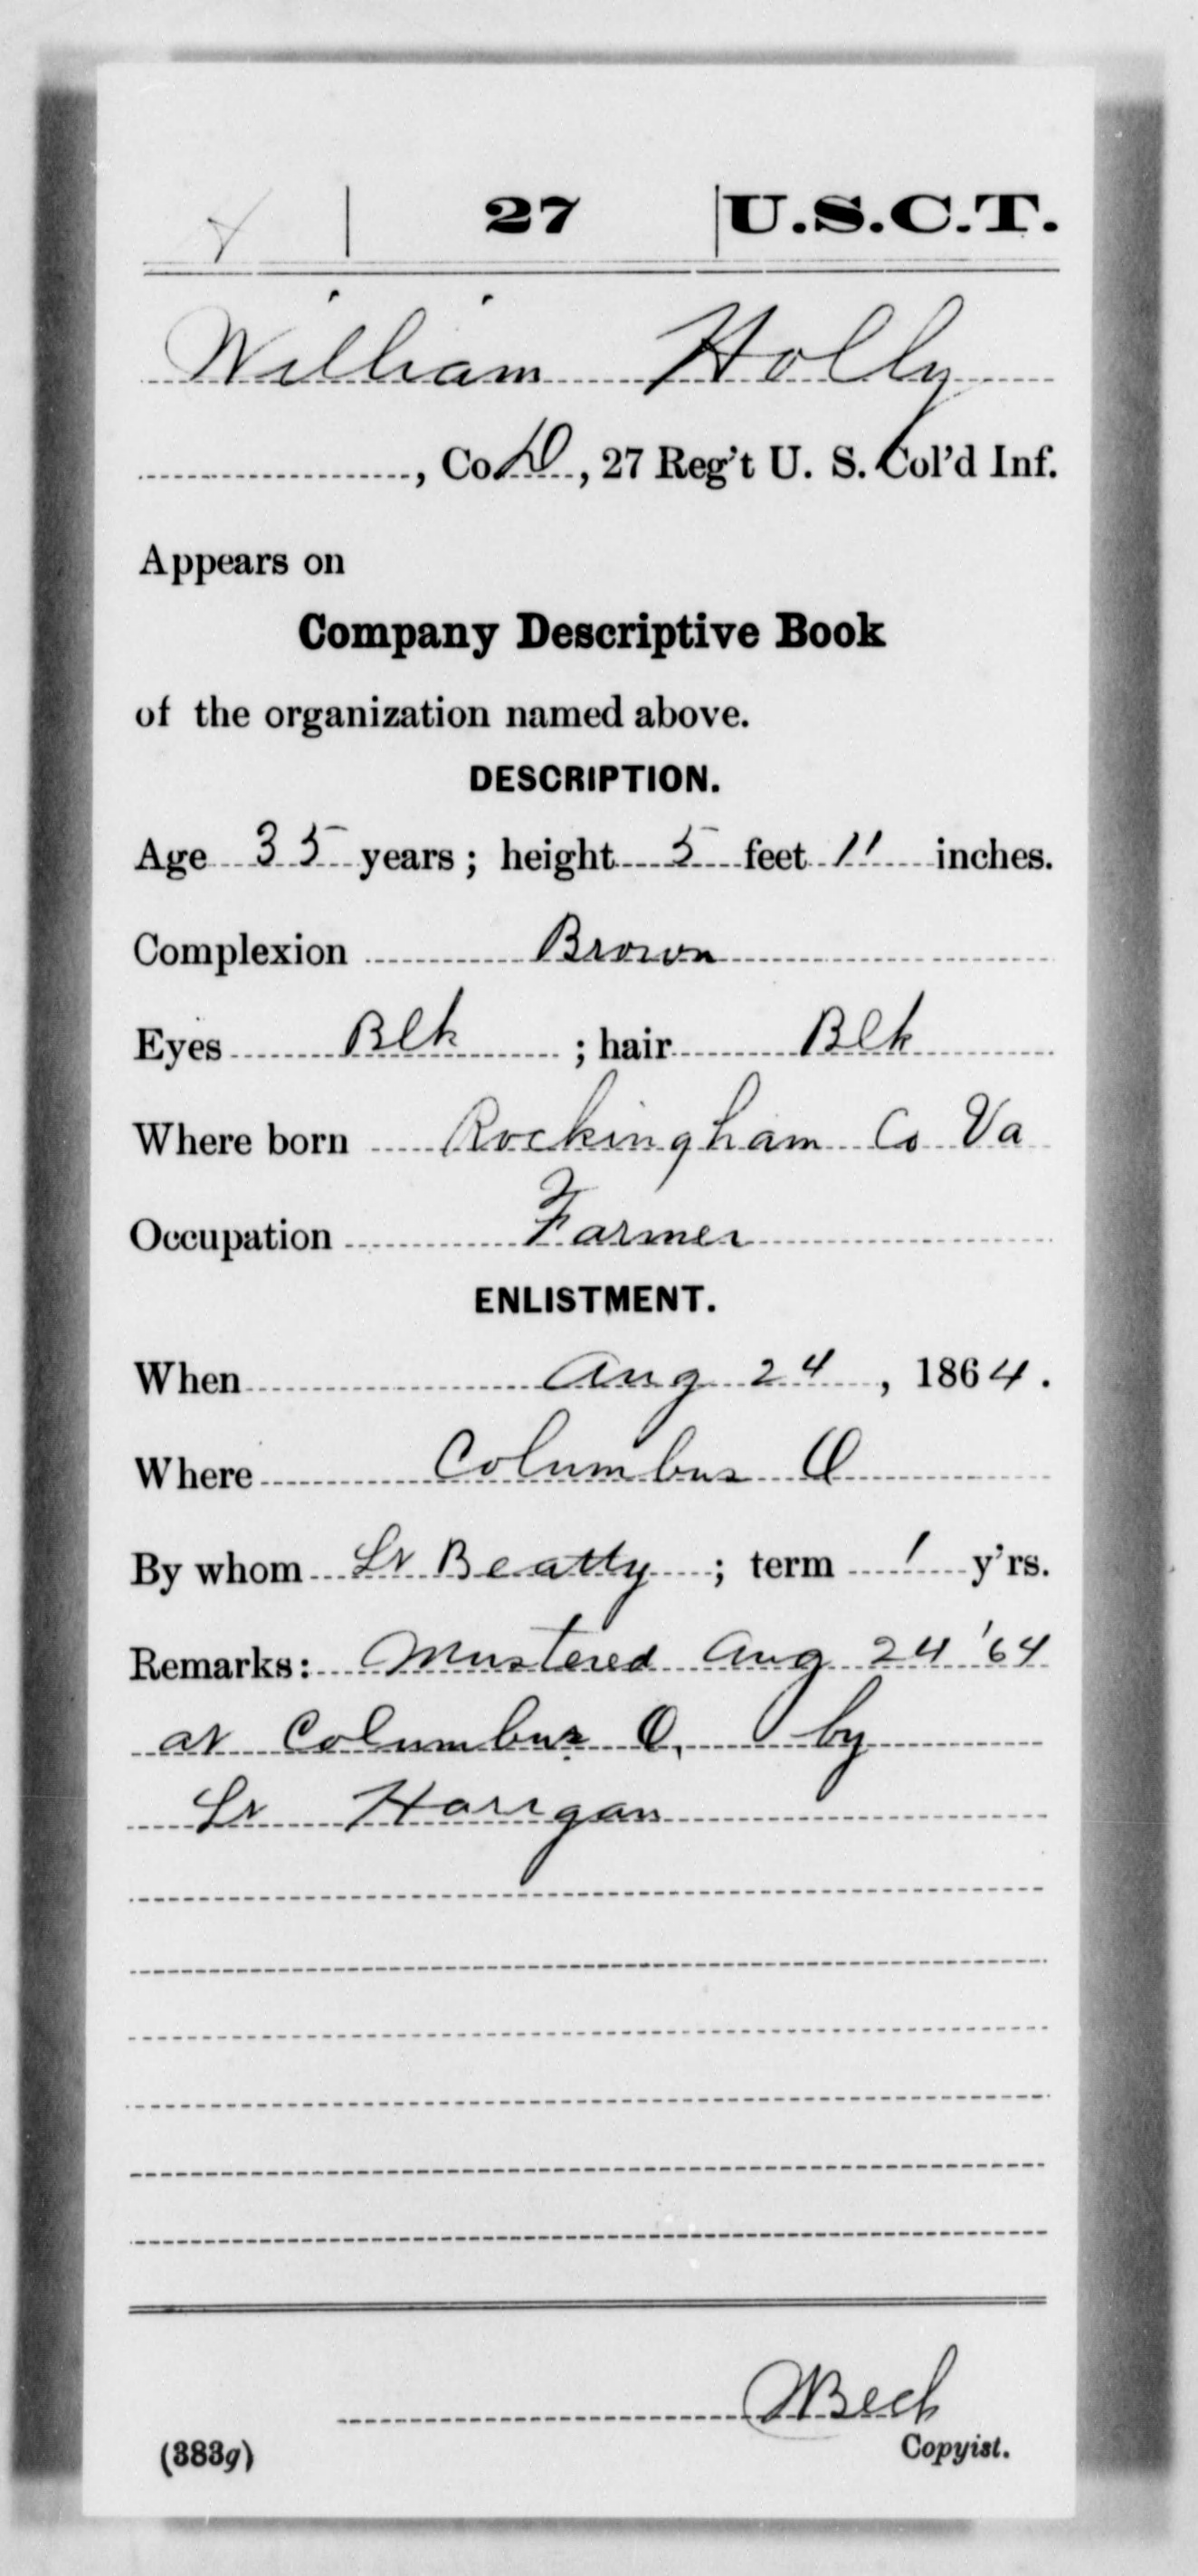 27 U.S.C.T.
William Holly
, Co. D, 27 Reg't U. S. Col'd Inf.
Appears on
Company Descriptive Book
of the organization named above.
DESCRIPTION.
Age 35 years; height 5 feet 11 inches.
Complexion Brown
Eyes Blk ; hair Blk
Where born Rockingham Co Va
Occupation Farmer
ENLISTMENT.
When Aug 24, 1864.
Where Columbus O
By whom Lt Beatty ; term 1 y'rs.
Remarks: Mustered Aug 24 '64
at Columbus O, by
Lt Harrgan
(383g)
Copyist.